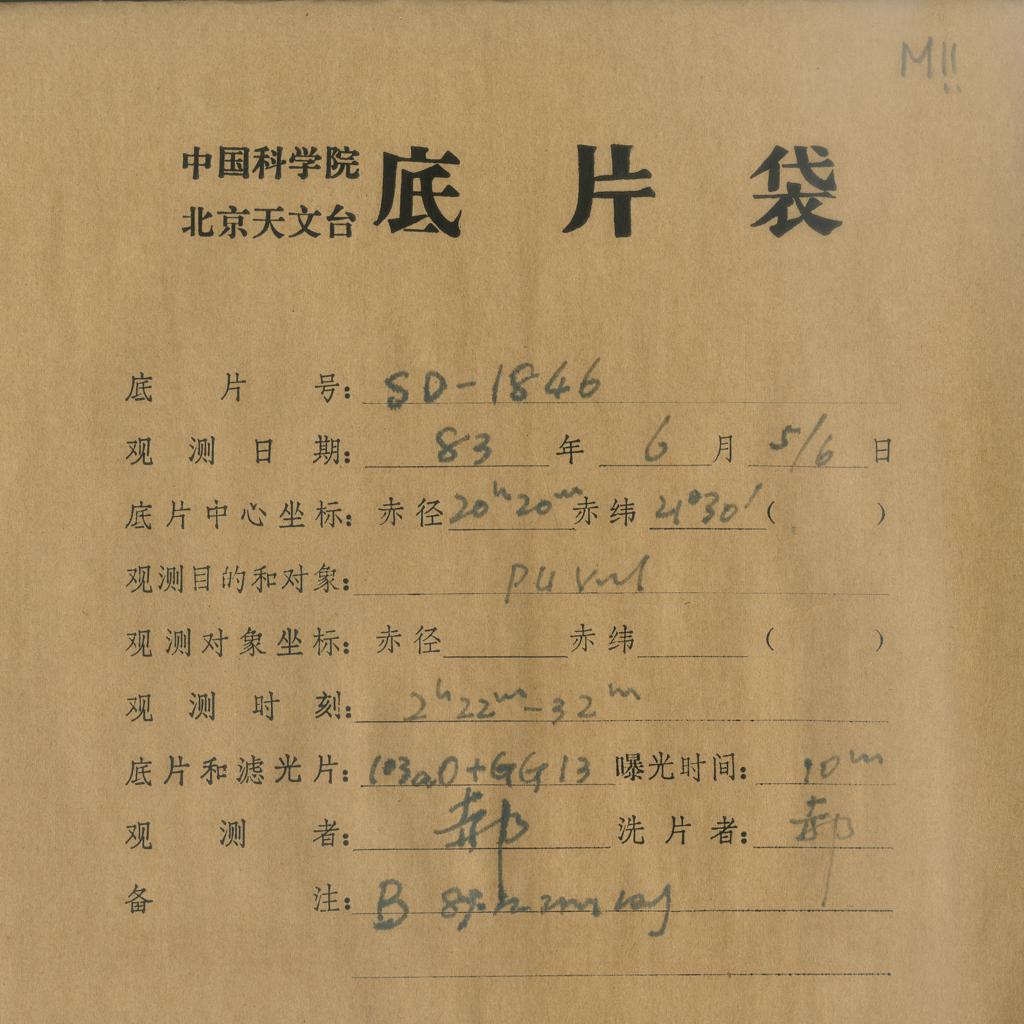 M!!
中国科学院
北京天文台
底片袋
底片号：SD-1846
观测日期：83年6月5/6日
底片中心坐标：赤径20h20m赤纬21°30′( )
观测目的和对象：PU Vul
观测对象坐标：赤径 赤纬 ( )
观测时刻：2h22m-32m
底片和滤光片：103aO+GG13 曝光时间：10m
观测者：郝 洗片者：郝
备注：B